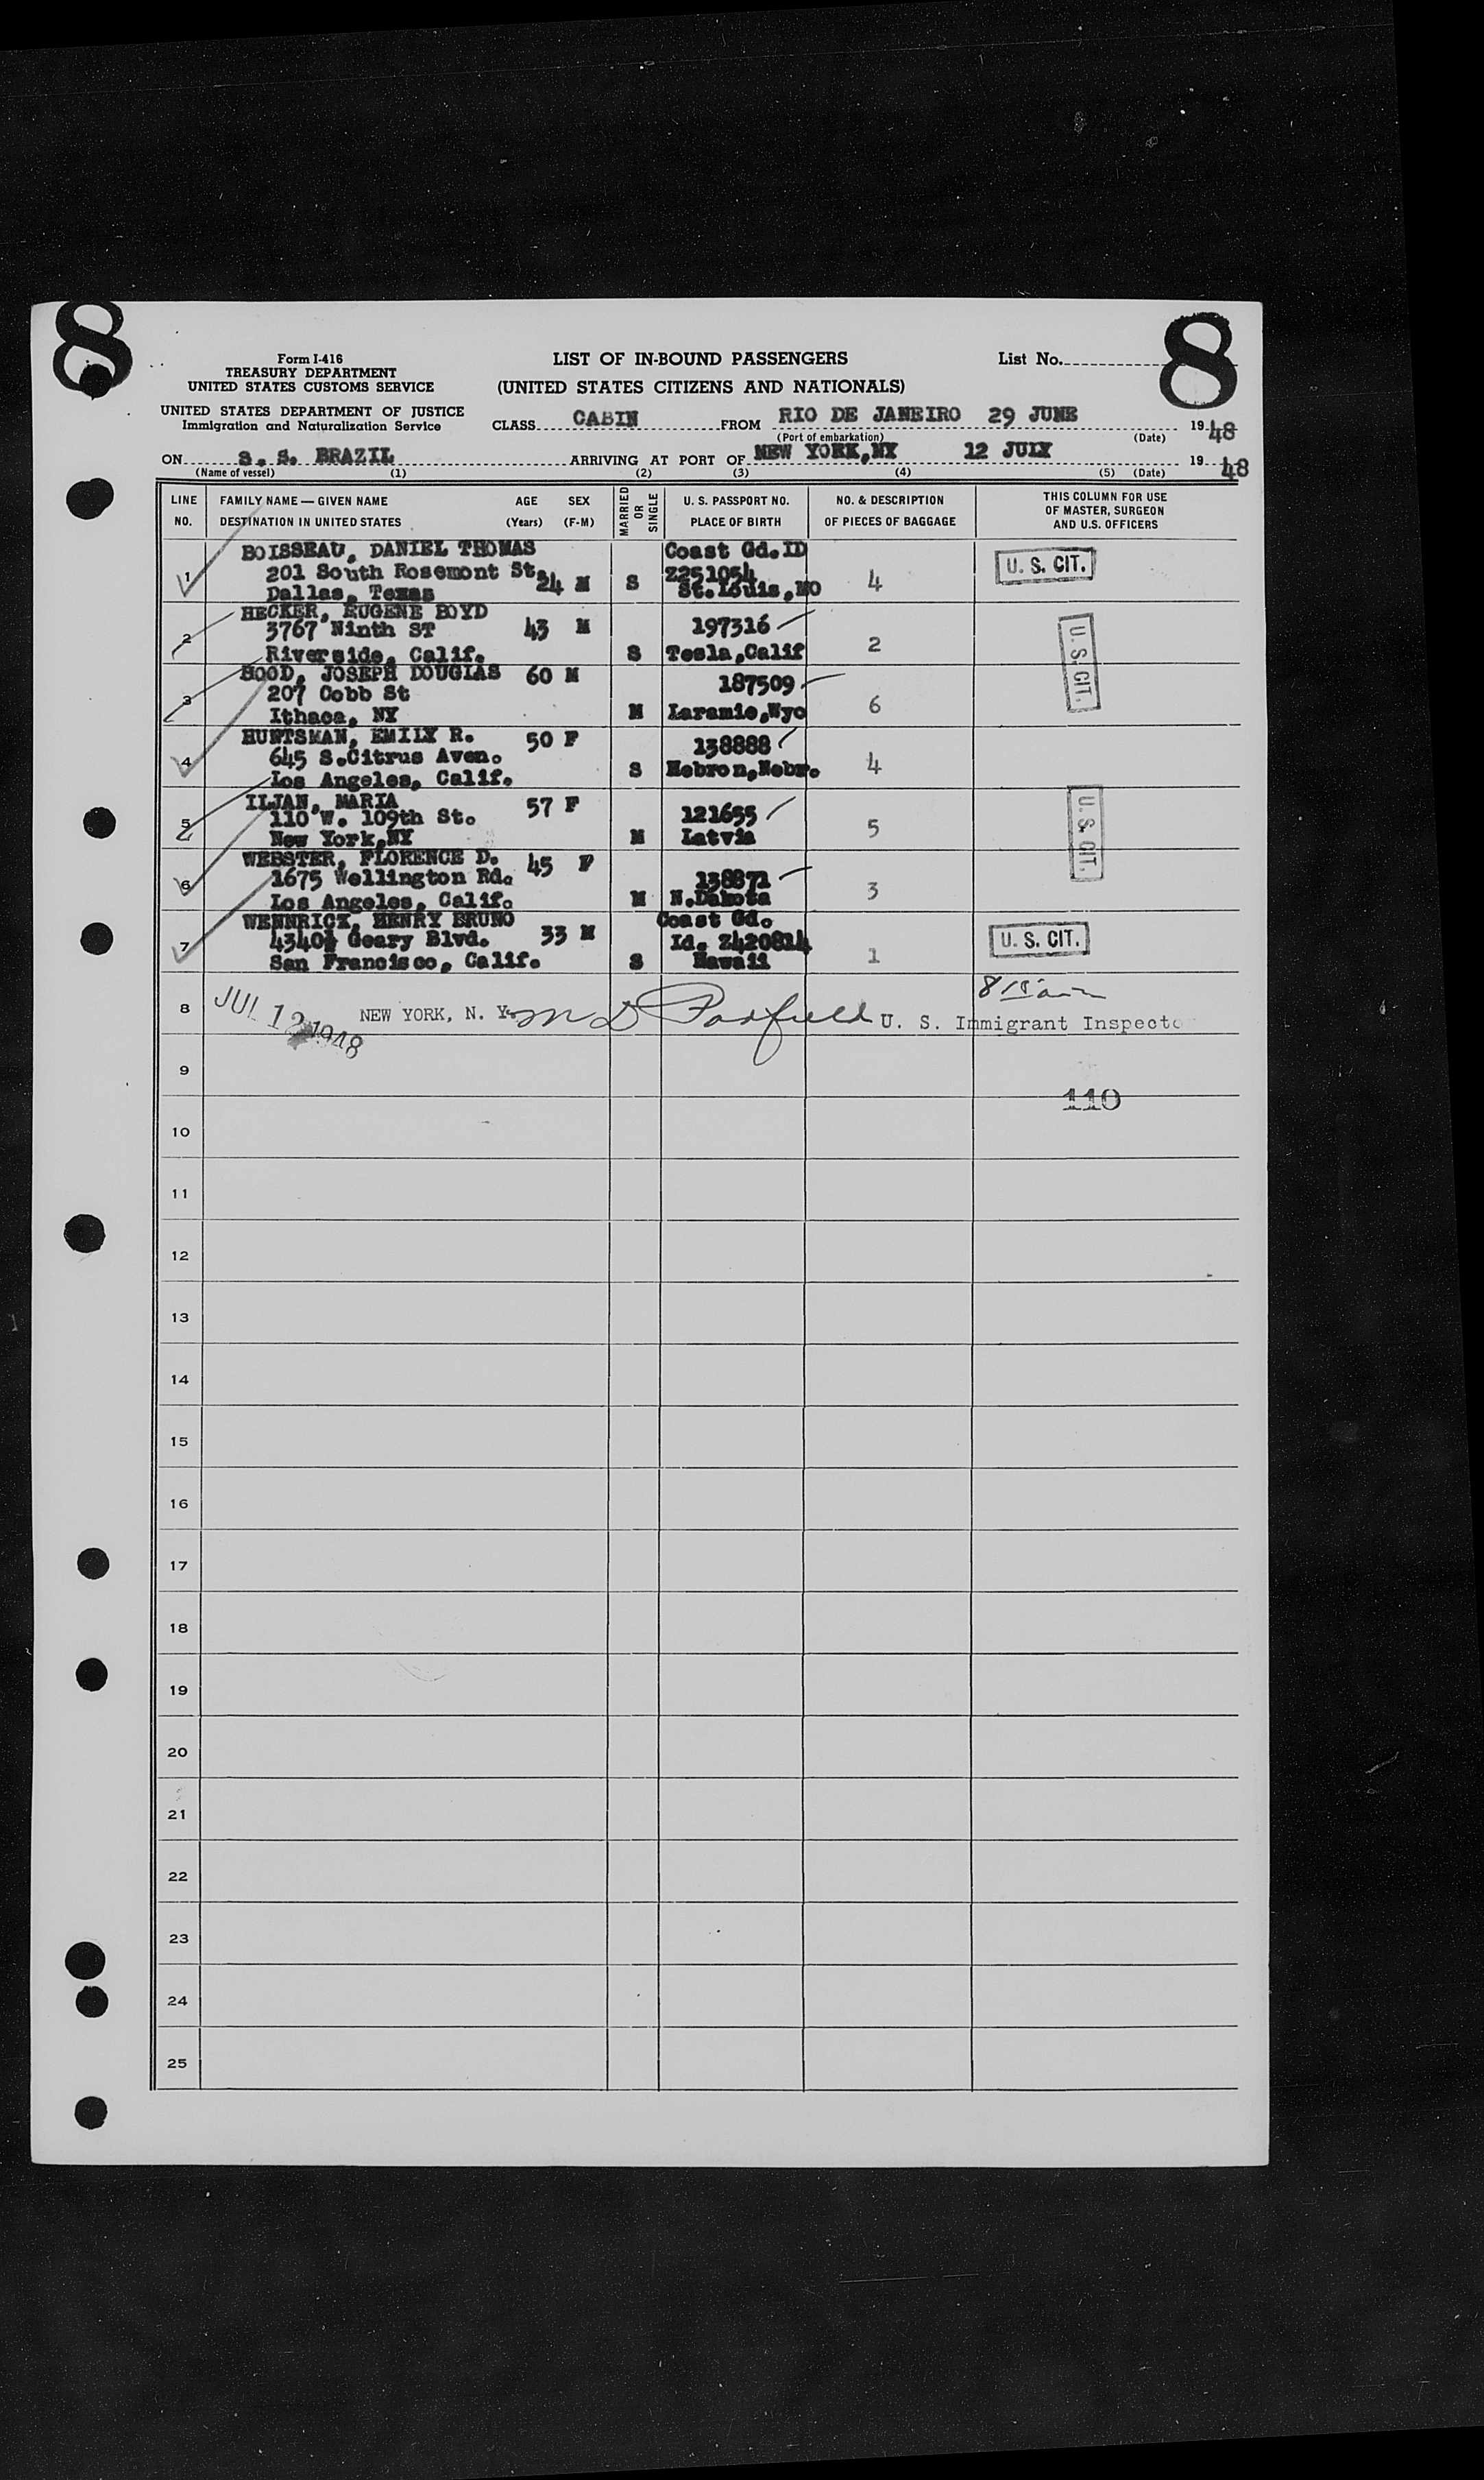 8
8
Form I-416
TREASURY DEPARTMENT
UNITED STATES CUSTOMS SERVICE
UNITED STATES DEPARTMENT OF JUSTICE
Immigration and Naturalization Service
LIST OF IN-BOUND PASSENGERS
(UNITED STATES CITIZENS AND NATIONALS)
List No.
CLASS CABIN FROM RIO DE JANEIRO 29 JUNE 1948
(Port of embarkation) (Date)
ON S.S. BRAZIL ARRIVING AT PORT OF NEW YORK,NY 12 JULY 1948
(Name of vessel) (1) (2) (3) (4) (5) (Date)
LINE NO. FAMILY NAME — GIVEN NAME DESTINATION IN UNITED STATES AGE (Years) SEX (F-M) MARRIED OR SINGLE U. S. PASSPORT NO. PLACE OF BIRTH NO. & DESCRIPTION OF PIECES OF BAGGAGE THIS COLUMN FOR USE OF MASTER, SURGEON AND U.S. OFFICERS
1 BOISSEAU, DANIEL THOMAS Coast Gd.ID U. S. CIT.
201 South Rosemont St. 24 M S Z251054 4
Dallas, Texas St.Louis,MO
2 HECKER, EUGENE BOYD
3767 Ninth ST 43 M 197316 2 U. S. CIT.
Riverside, Calif. S Tesla,Calif
3 HOOD, JOSEPH DOUGLAS 60 M 187509
207 Cobb St 6
Ithaca, NY M Laramie,Wyo
4 HUNTSMAN, EMILY R. 50 F 138888
645 S.Citrus Aven. 4
Los Angeles, Calif. S Hebron,Nebr.
5 ILJAN, MARIA 57 F 121655 U. S. CIT.
110 W. 109th St. 5
New York,NY M Latvia
6 WEBSTER, FLORENCE D. 45 F
1675 Wellington Rd. 138871 3
Los Angeles, Calif. M N.Dakota
7 WENNRICK, HENRY BRUNO Coast Gd.
4340½ Geary Blvd. 33 M Id. Z420814 1 U. S. CIT.
San Francisco, Calif. S Hawaii
8 JUL 12 1948 NEW YORK, N. Y. U. S. Immigrant Inspector
9
110
10
11
12
13
14
15
16
17
18
19
20
21
22
23
24
25